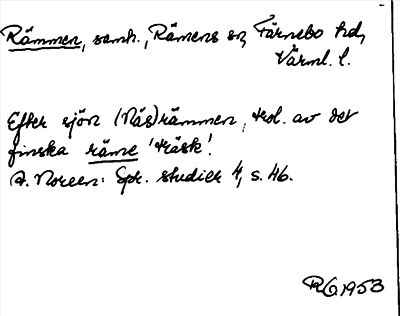 Rämmen, samh., Rämens sn, Färnebo hd,
Värml. l.
Efter sjön (Näs)rämmen, trol. av det
finska räme 'träsk'.
A. Noreen: Spr. studier 4, s. 46.
RG 1953